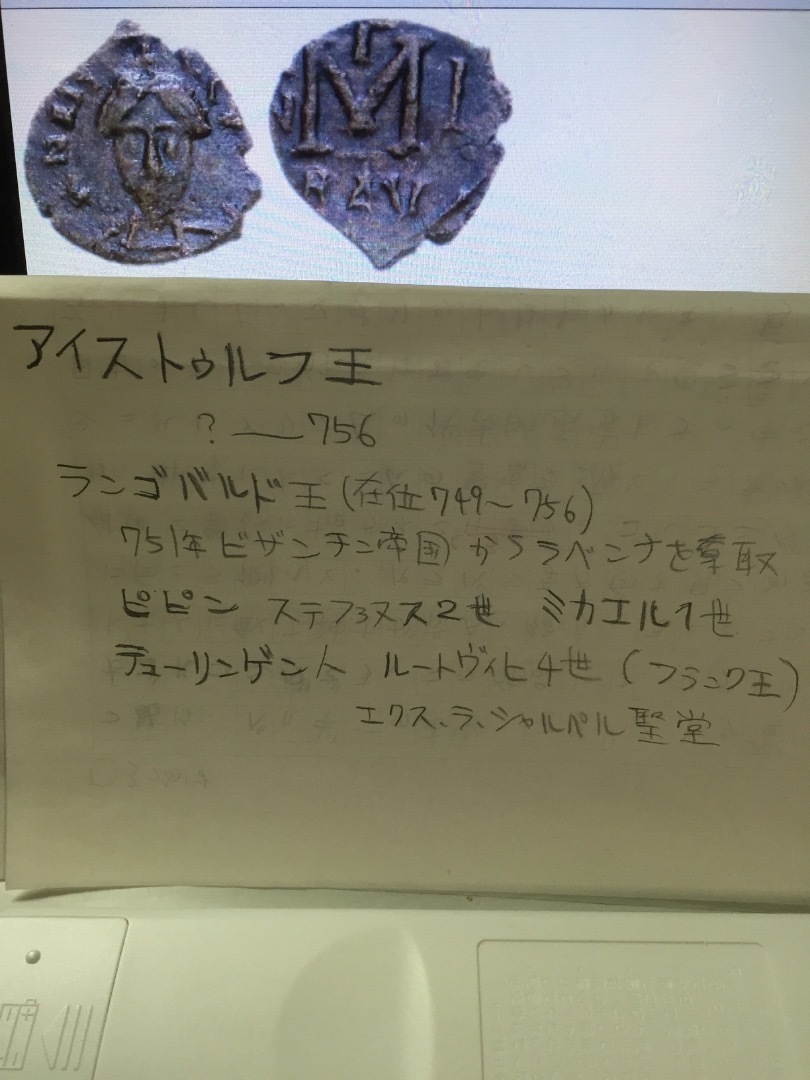 M I
RAV
アイストゥルフ王
？ー756
ランゴバルド王(在位749～756)
751年ビザンチン帝国からラベンナを奪取
ピピン ステファヌス2世 ミカエル1世
テューリンゲン人 ルートヴィヒ4世(フランク王)
エクス、ラ、シャルペル聖堂